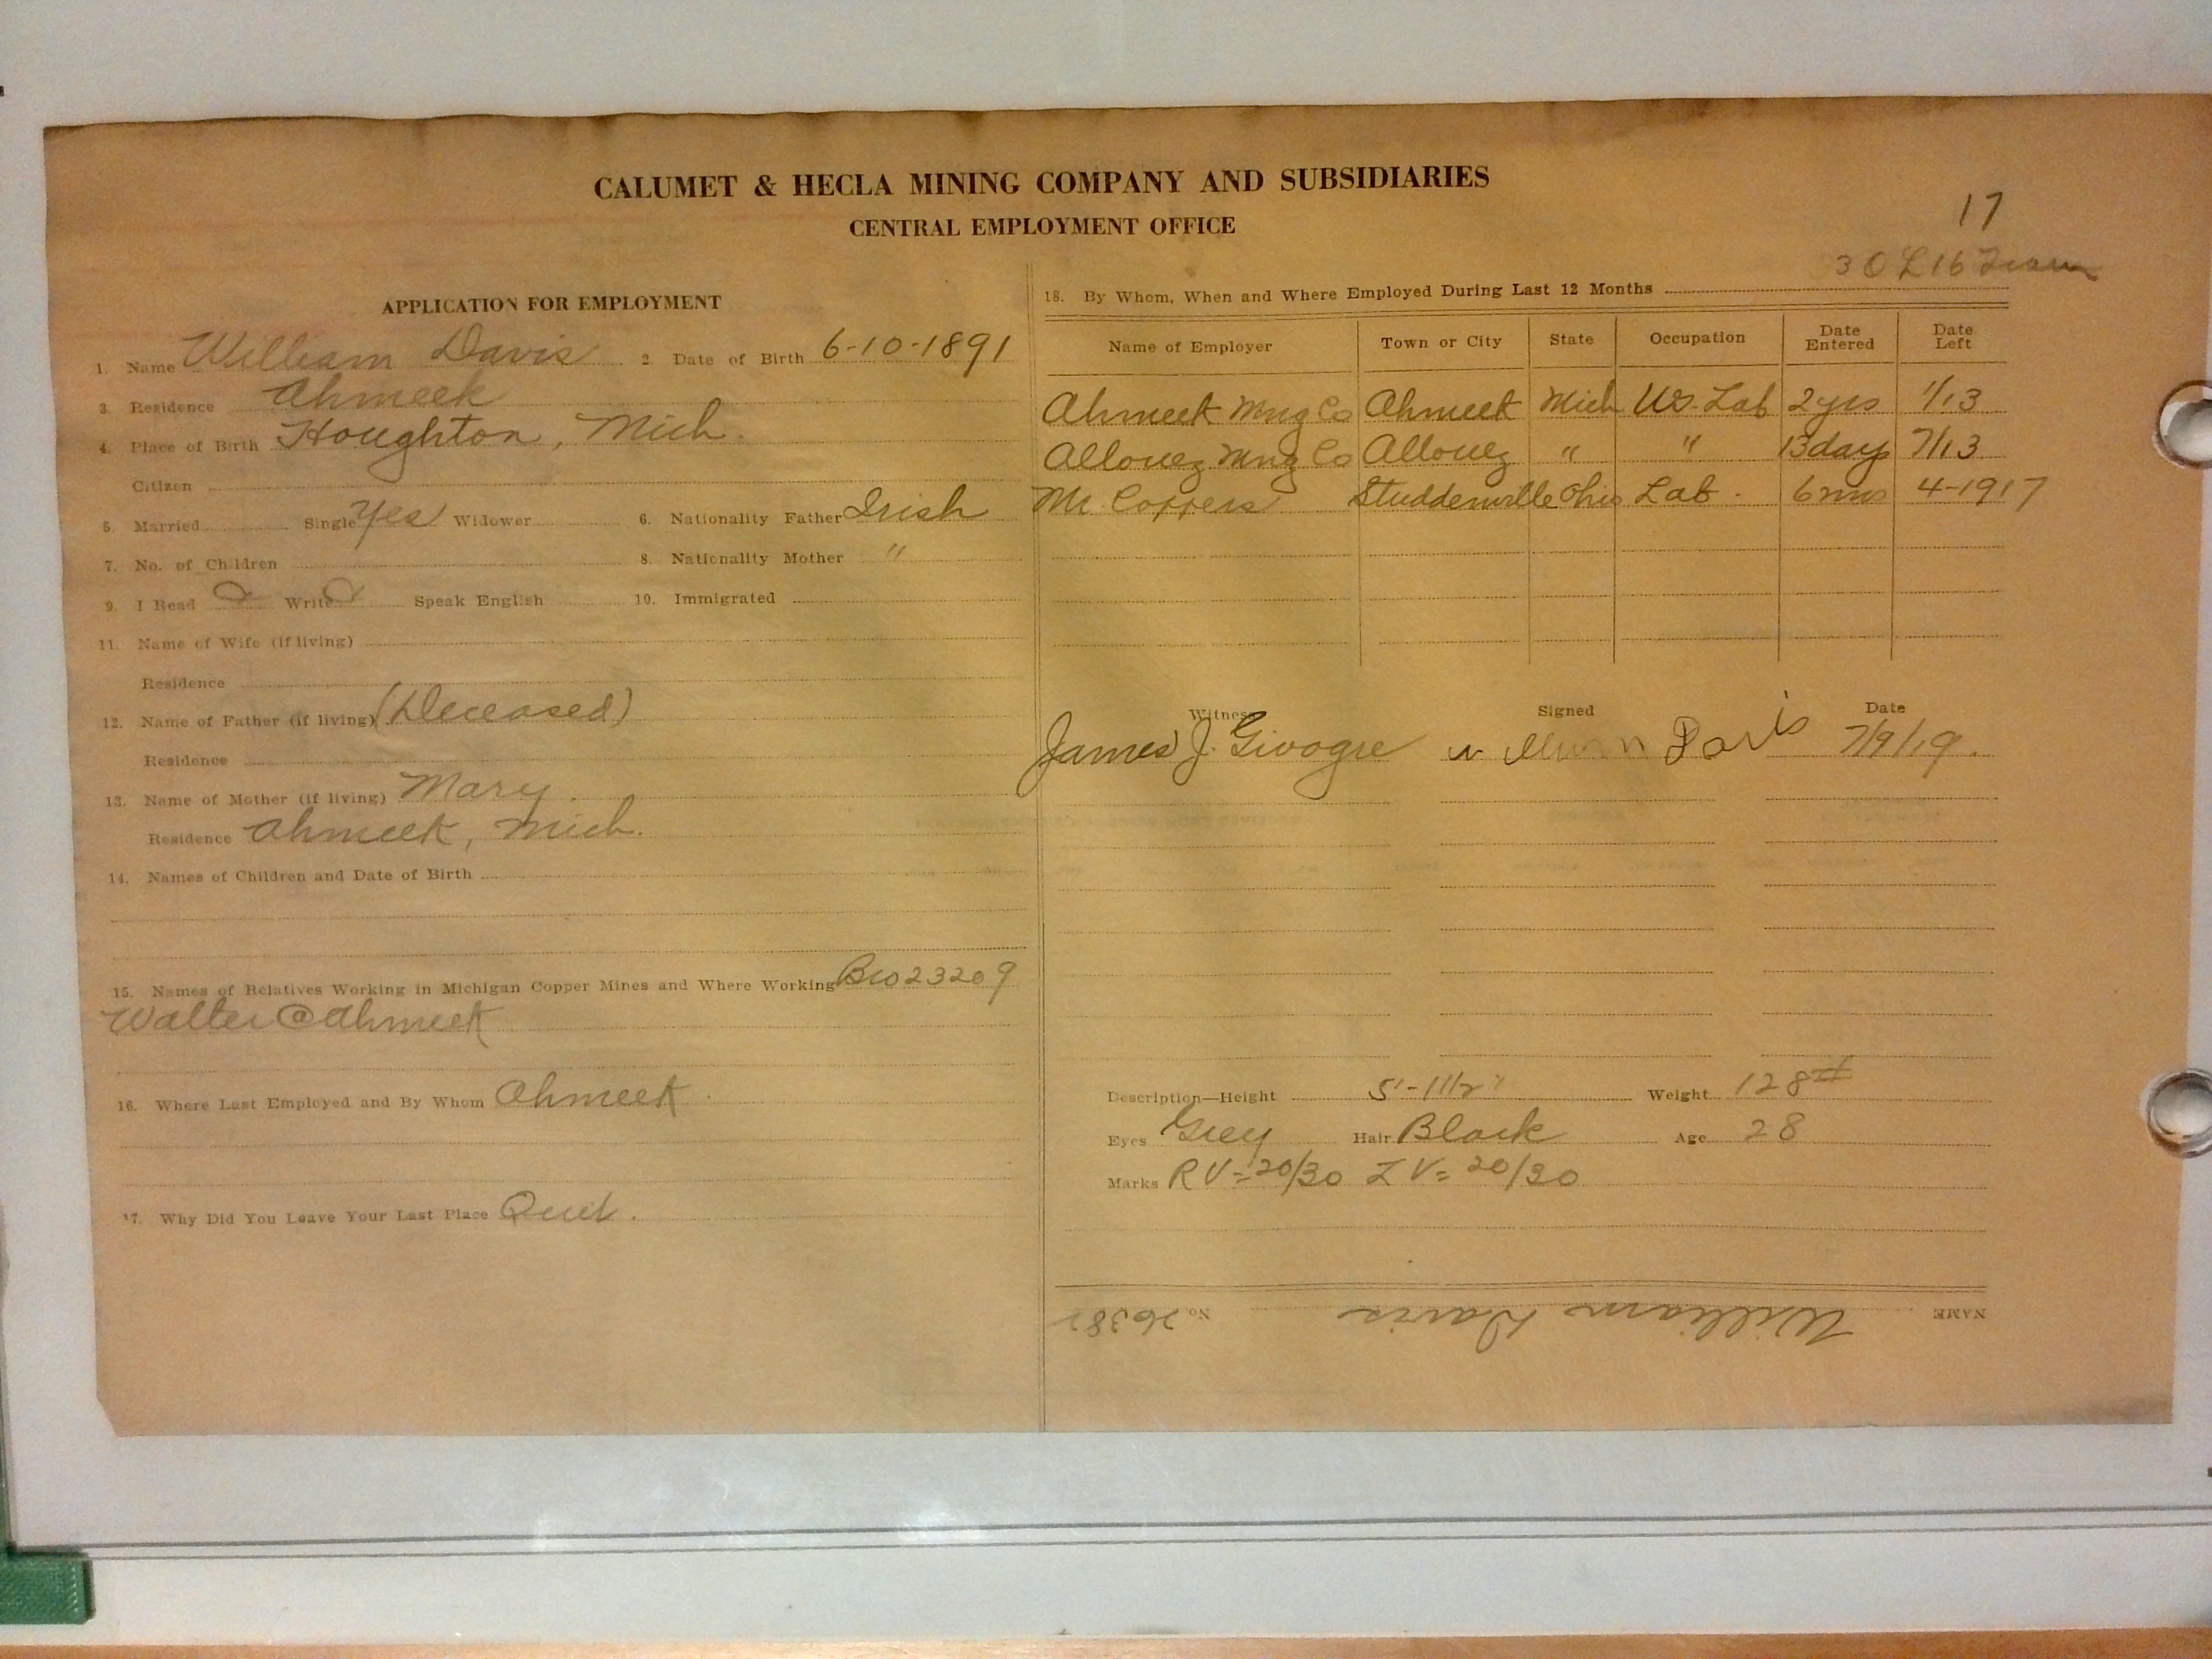 CALUMET & HECLA MINING COMPANY AND SUBSIDIARIES
CENTRAL EMPLOYMENT OFFICE
17
30 L 16
APPLICATION FOR EMPLOYMENT
1. Name William Davis 2. Date of Birth 6-10-1891
3. Residence Ahmeek
4. Place of Birth Houghton, Mich.
Citizen
5. Married Single Yes Widower 6. Nationality Father Irish
7. No. of Children 8. Nationality Mother "
9. I Read Write Speak English 10. Immigrated
11. Name of Wife (if living)
Residence
12. Name of Father (if living) (Deceased)
Residence
13. Name of Mother (if living) Mary.
Residence Ahmeek, Mich.
14. Names of Children and Date of Birth
15. Names of Relatives Working in Michigan Copper Mines and Where Working Bro 23209
Walter @ Ahmeek
16. Where Last Employed and By Whom Ahmeek.
17. Why Did You Leave Your Last Place Quit.
18. By Whom, When and Where Employed During Last 12 Months
Name of Employer Town or City State Occupation Date Entered Date Left
Ahmeek Mng Co Ahmeek Mich UG. Lab 2 yrs 1/13
Allouez Mng Co Allouez " " 13 days 7/13
Mc Coppers Studdenville Ohio Lab. 6 mos 4-1917
Witness Signed Date
James J. William Davis 7/9/19.
Description—Height 5'-11 1/2" Weight 128#
Eyes Grey Hair Black Age 28
Marks R V= 20/30 L V= 20/30
NAME William Davis No.